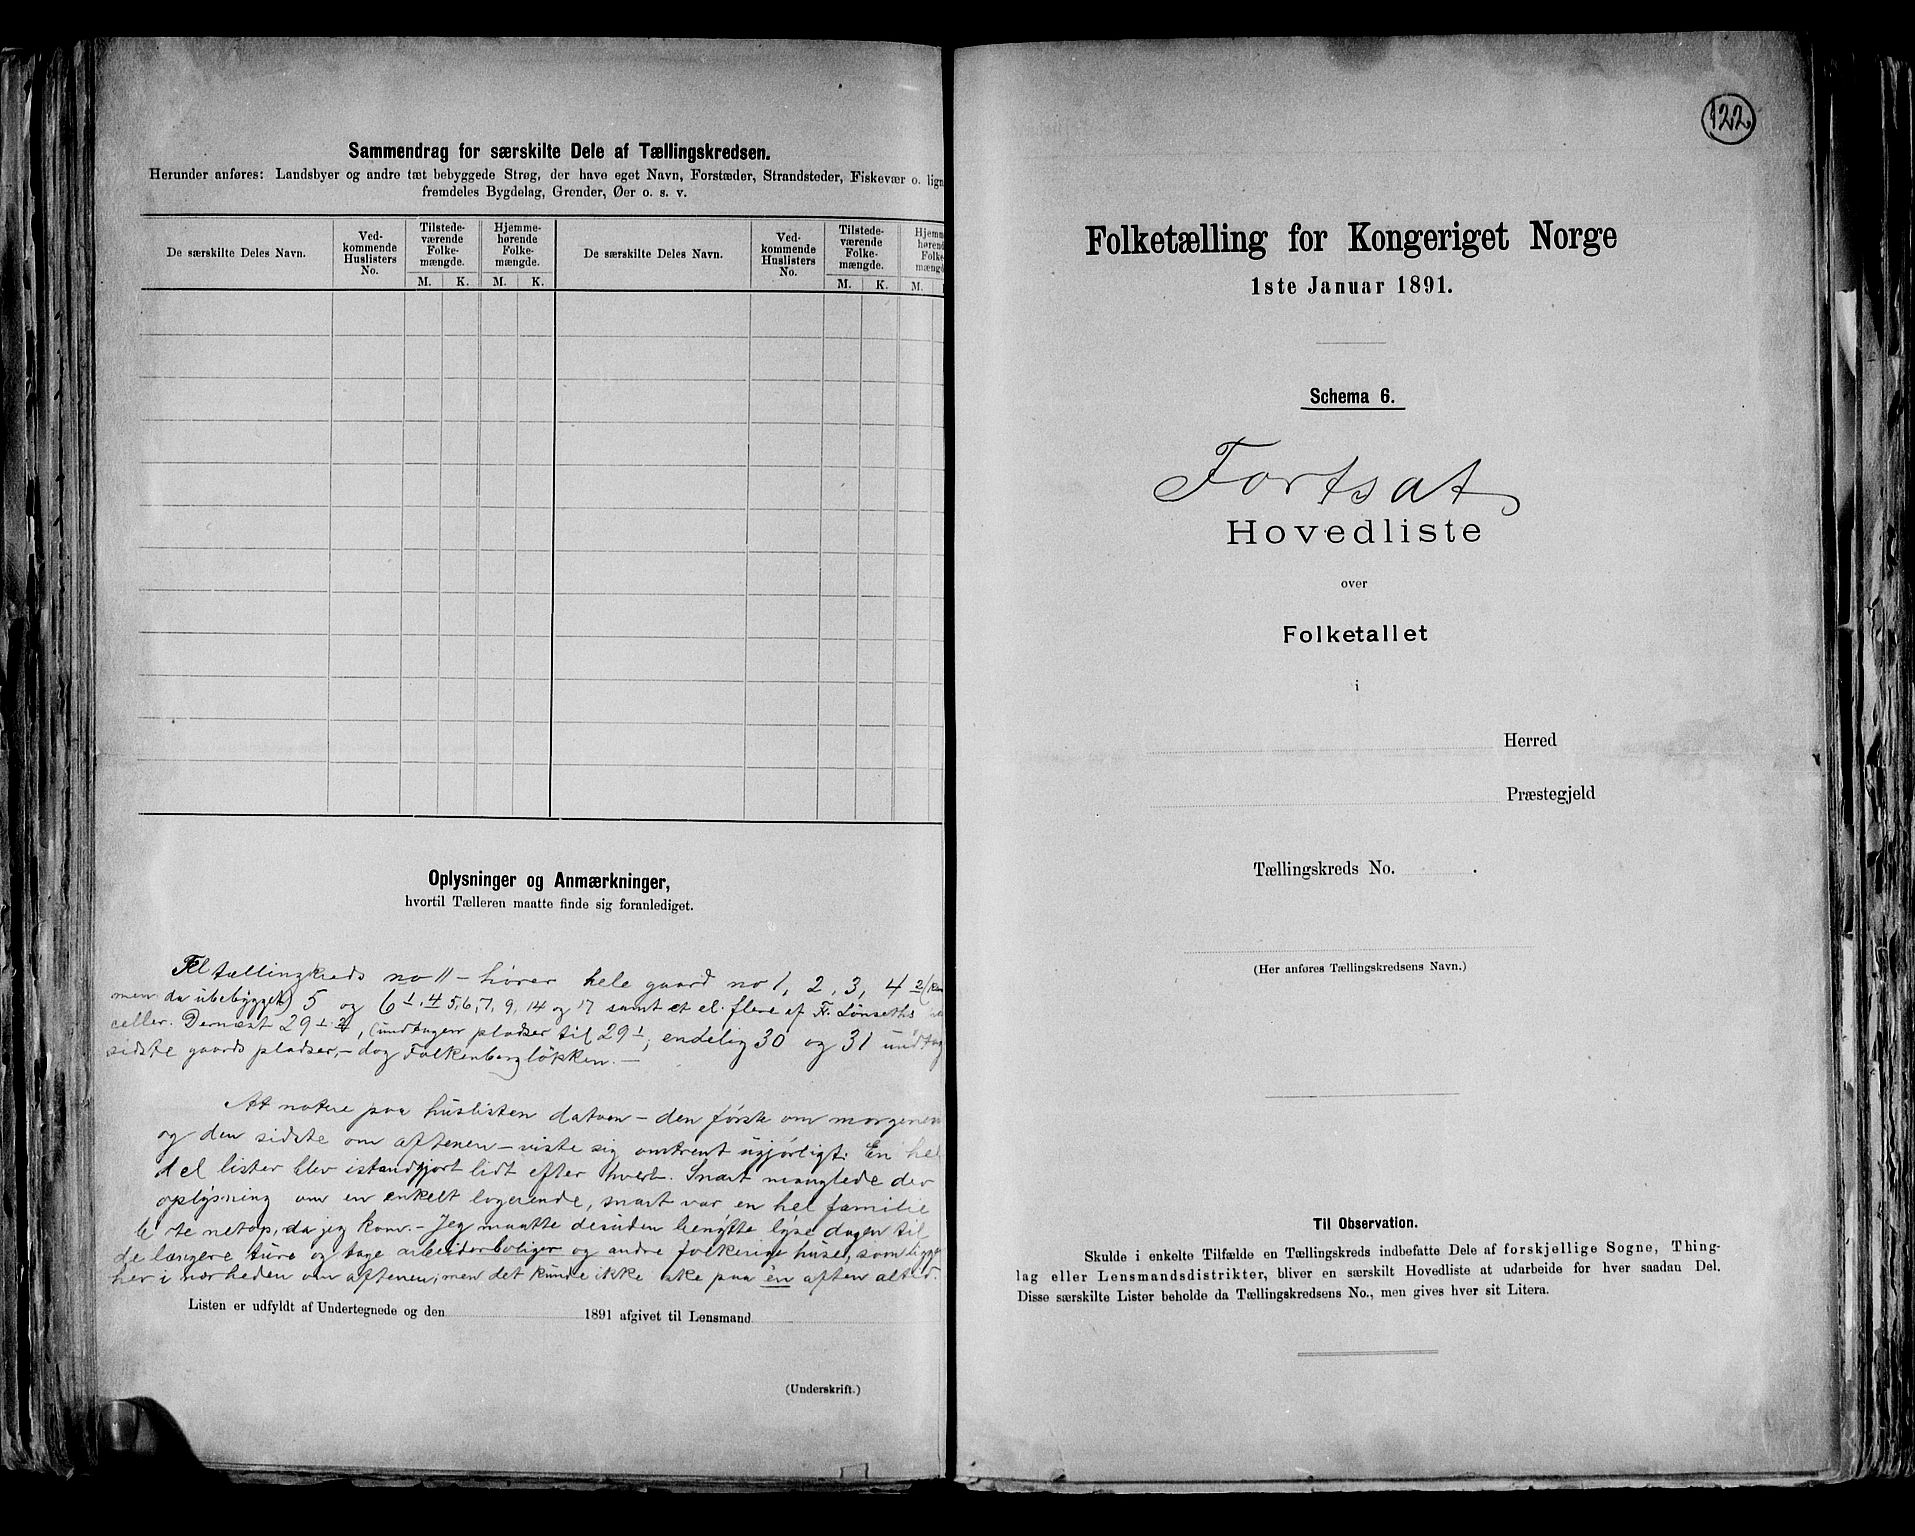 Sammendrag for særskilte Dele af Tællingskredsen.
Herunder anføres: Landsbyer og andre tæt bebyggede Strøg, der have eget Navn, Forstæder, Strandsteder, Fiskevær o. lign
fremdeles Bygdelag, Grender, Øer o. s. v.
De særskilte Deles Navn.
Ved-
kommende
Huslisters
No.
Tilstede-
værende
Folke-
mængde.
Hjemme-
hørende
Folke-
mængde.
M. K. M. K.
De særskilte Deles Navn.
Ved-
kommende
Huslisters
No.
Tilstede-
værende
Folke-
mængde.
Hjemm
hørend
Folke-
mængd
M. K. M.
Oplysninger og Anmærkninger,
hvortil Tælleren maatte finde sig foranlediget.
Til tællingkreds no 11 – hører hele gaard no 1, 2, 3, 4 2
men da ubebygget) 5 og 6 1, 4 5, 6, 7, 9, 14 og 17 samt et el. flere af Fr. Lønseths
celler. Dernæst 29 1. (undtagen pladser til 29 1, endelig 30 og 31 undtag
sidste gaards pladser, – dog Falkenbergløkken. –
At notere paa huslisten datoen – den første om morgenen
og den sidste om aftenen – viste sig omtrent ugjørligt. En hel
del lister blev istandgjort lidt efter hvert. Snart manglede der
oplysning om en enkelt logerende, snart var en hel familie
borte netop, da jeg kom. – Jeg maatte desuden benytte lyse dagen til
de længere ture og tage arbeiderboliger og andre folkerige huse, som ligge
her i nærheden om aftenen; men det kunde ikke ske paa én aften altid.
Listen er udfyldt af Undertegnede og den 1891 afgivet til Lensmand
(Underskrift.)
122
Folketælling for Kongeriget Norge
1ste Januar 1891.
Schema 6.
Fortsat
Hovedliste
over
Folketallet
i
Herred
Præstegjeld
Tællingskreds No. .
(Her anføres Tællingskredsens Navn.)
Til Observation.
Skulde i enkelte Tilfælde en Tællingskreds indbefatte Dele af forskjellige Sogne, Thing-
lag eller Lensmandsdistrikter, bliver en særskilt Hovedliste at udarbeide for hver saadan Del.
Disse særskilte Lister beholde da Tællingskredsens No., men gives hver sit Litera.